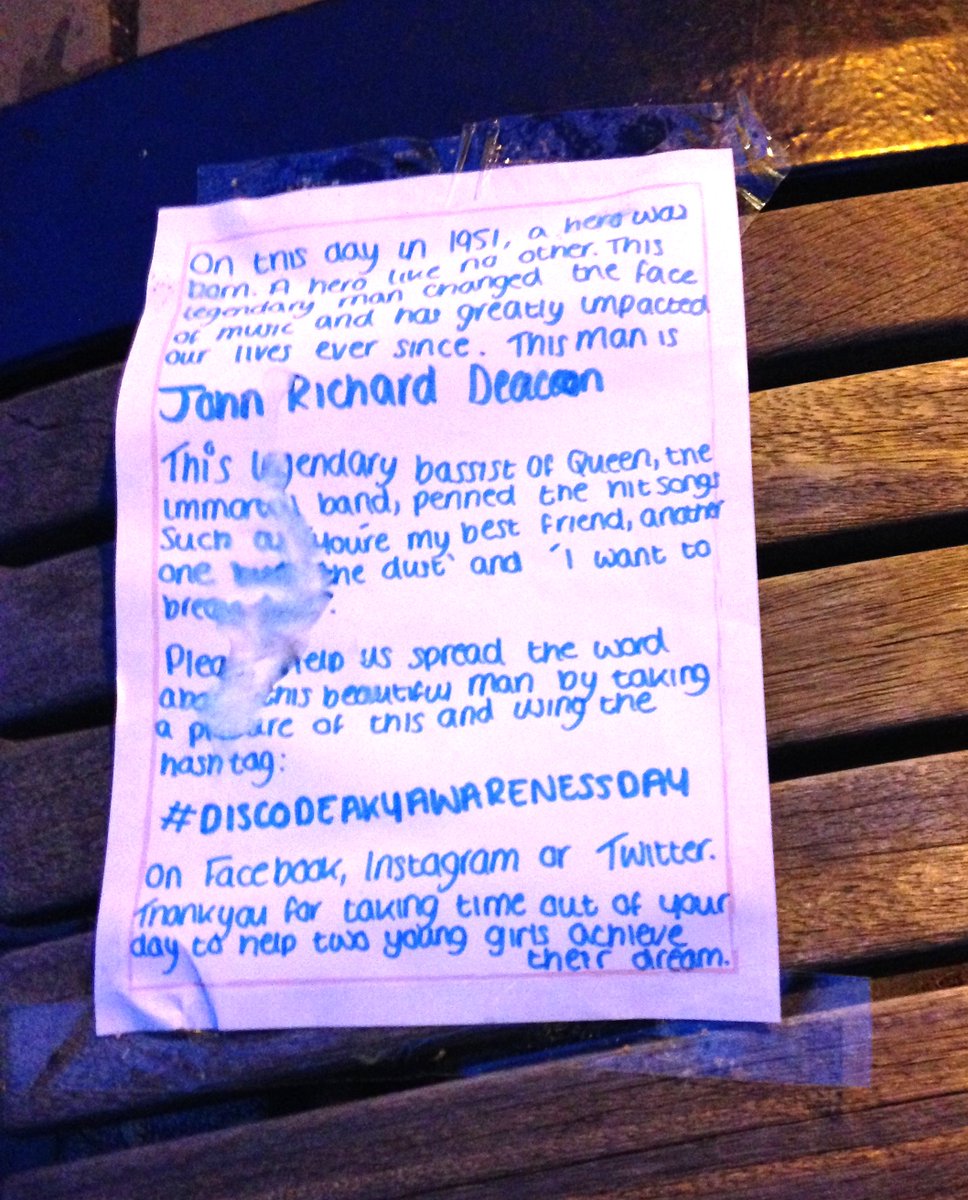 On this day in 1951, a hero was
born. A hero like no other. This
legendary man changed the face
of music and has greatly impacted
our lives ever since. This man is
John Richard Deacon
This legendary bassist of Queen, the
immortal band, penned the hit songs
Such as 'you're my best friend, another
one the dust' and 'I want to
Please help us spread the word
about this beautiful man by taking
a picture of this and using the
hashtag:
#DISCODEAKYAWARENESSDAY
on Facebook, Instagram or Twitter.
Thankyou for taking time out of your
day to help two young girls achieve
their dream.